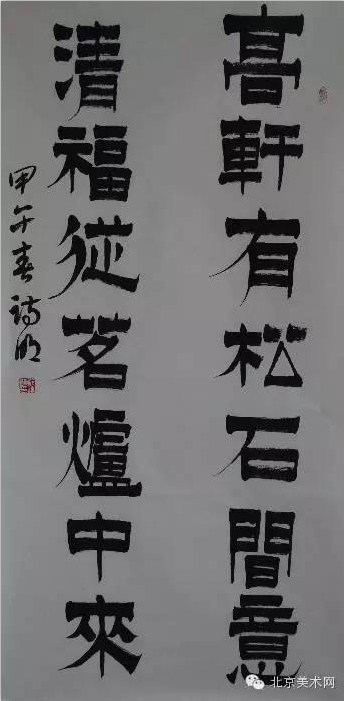 高軒有松石間意
清福從茗爐中來
甲午春詩明
北京美术网